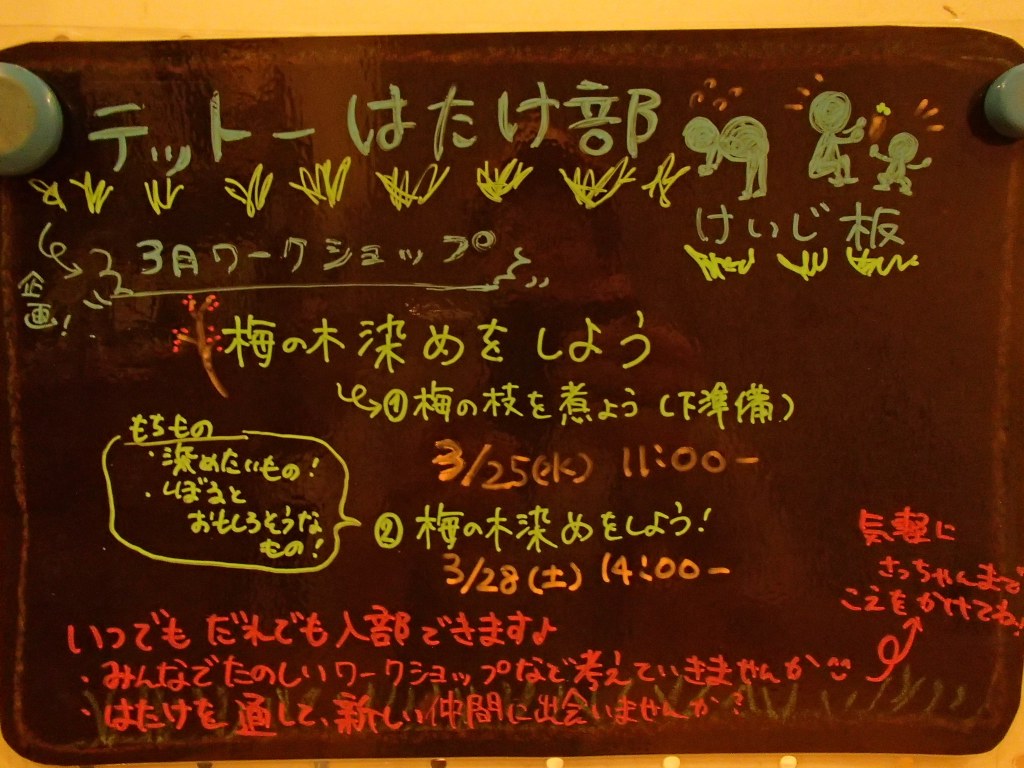 テットーはたけ部
けいじ板
企画!
3月ワークショップ
梅の木染めをしよう
①梅の枝を煮よう(下準備)
3/25(水) 11:00ー
もちもの
・染めたいもの!
・しぼると
おもしろそうな
もの!
②梅の木染めをしよう!
3/28(土) 14:00ー
気軽に
さっちゃんまで
こえをかけてね!
いつでもだれでも入部できます♪
・みんなでたのしいワークショップなど考えていきませんか
・はたけを通して、新しい仲間に出会いませんか?